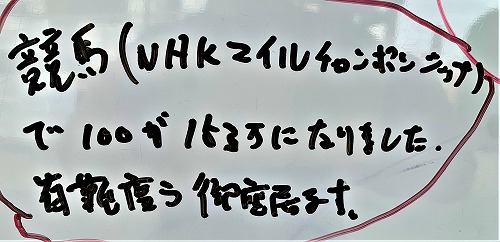 競馬(NHKマイルチャンピオンシップ)
で100が163万になりました.
有難度う御座居ます。